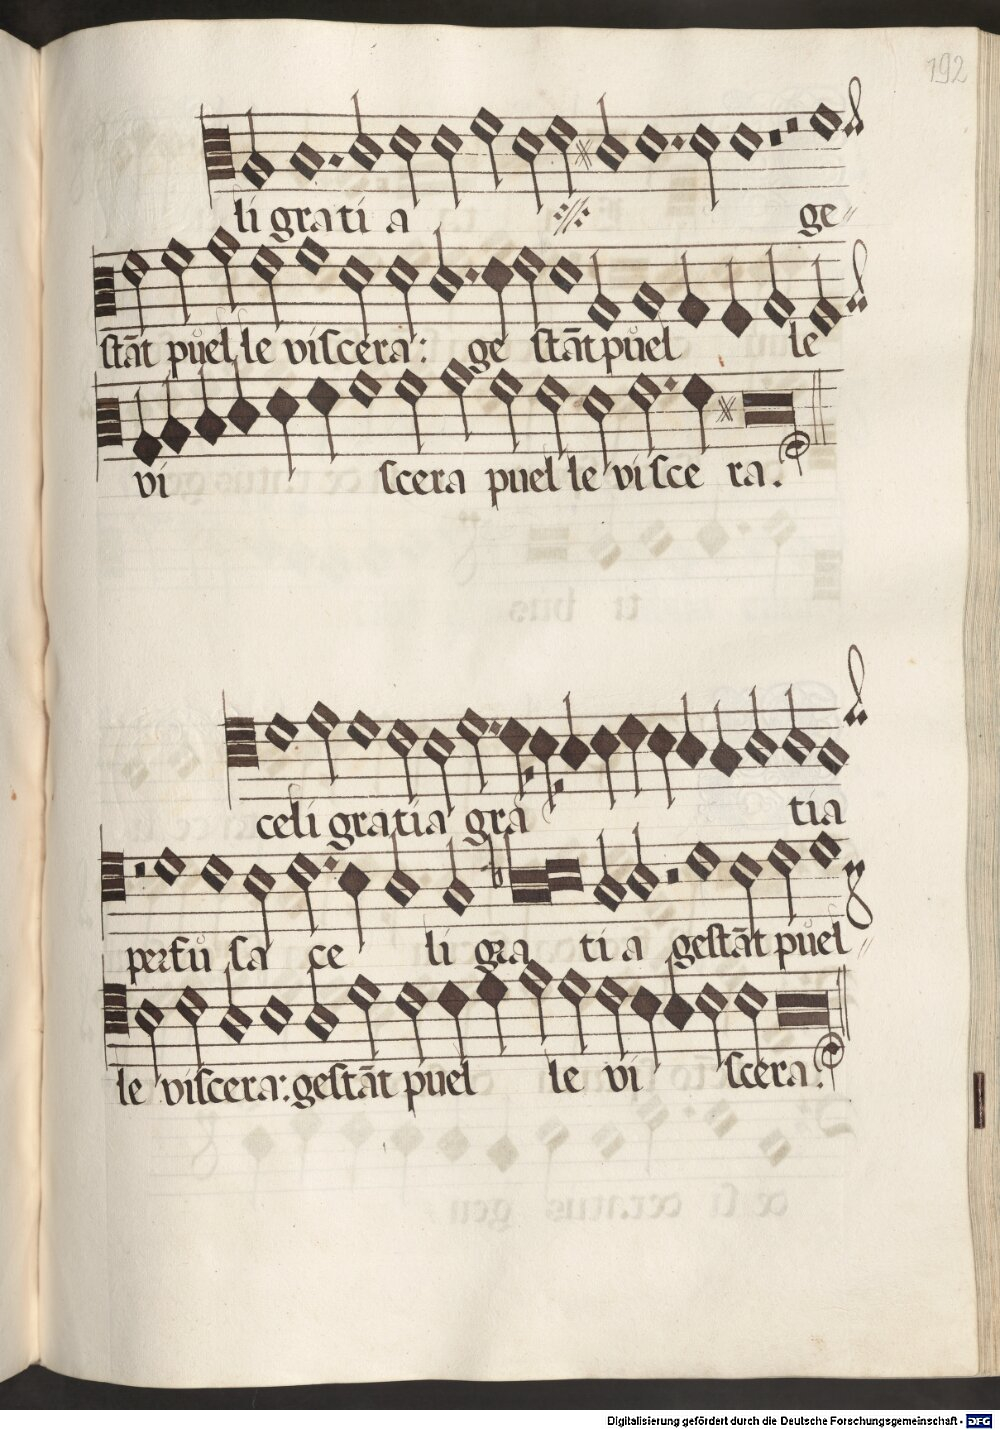 192
li grati a ge
stāt půel le viscera: ge stāt půel le
vi scera puel le visce ra.
celi gratia gra tia
perfů sa ce li gra ti a gestāt půel
le viscera: gestāt půel le vi scera.
Digitalisierung gefördert durch die Deutsche Forschungsgemeinschaft - DFG